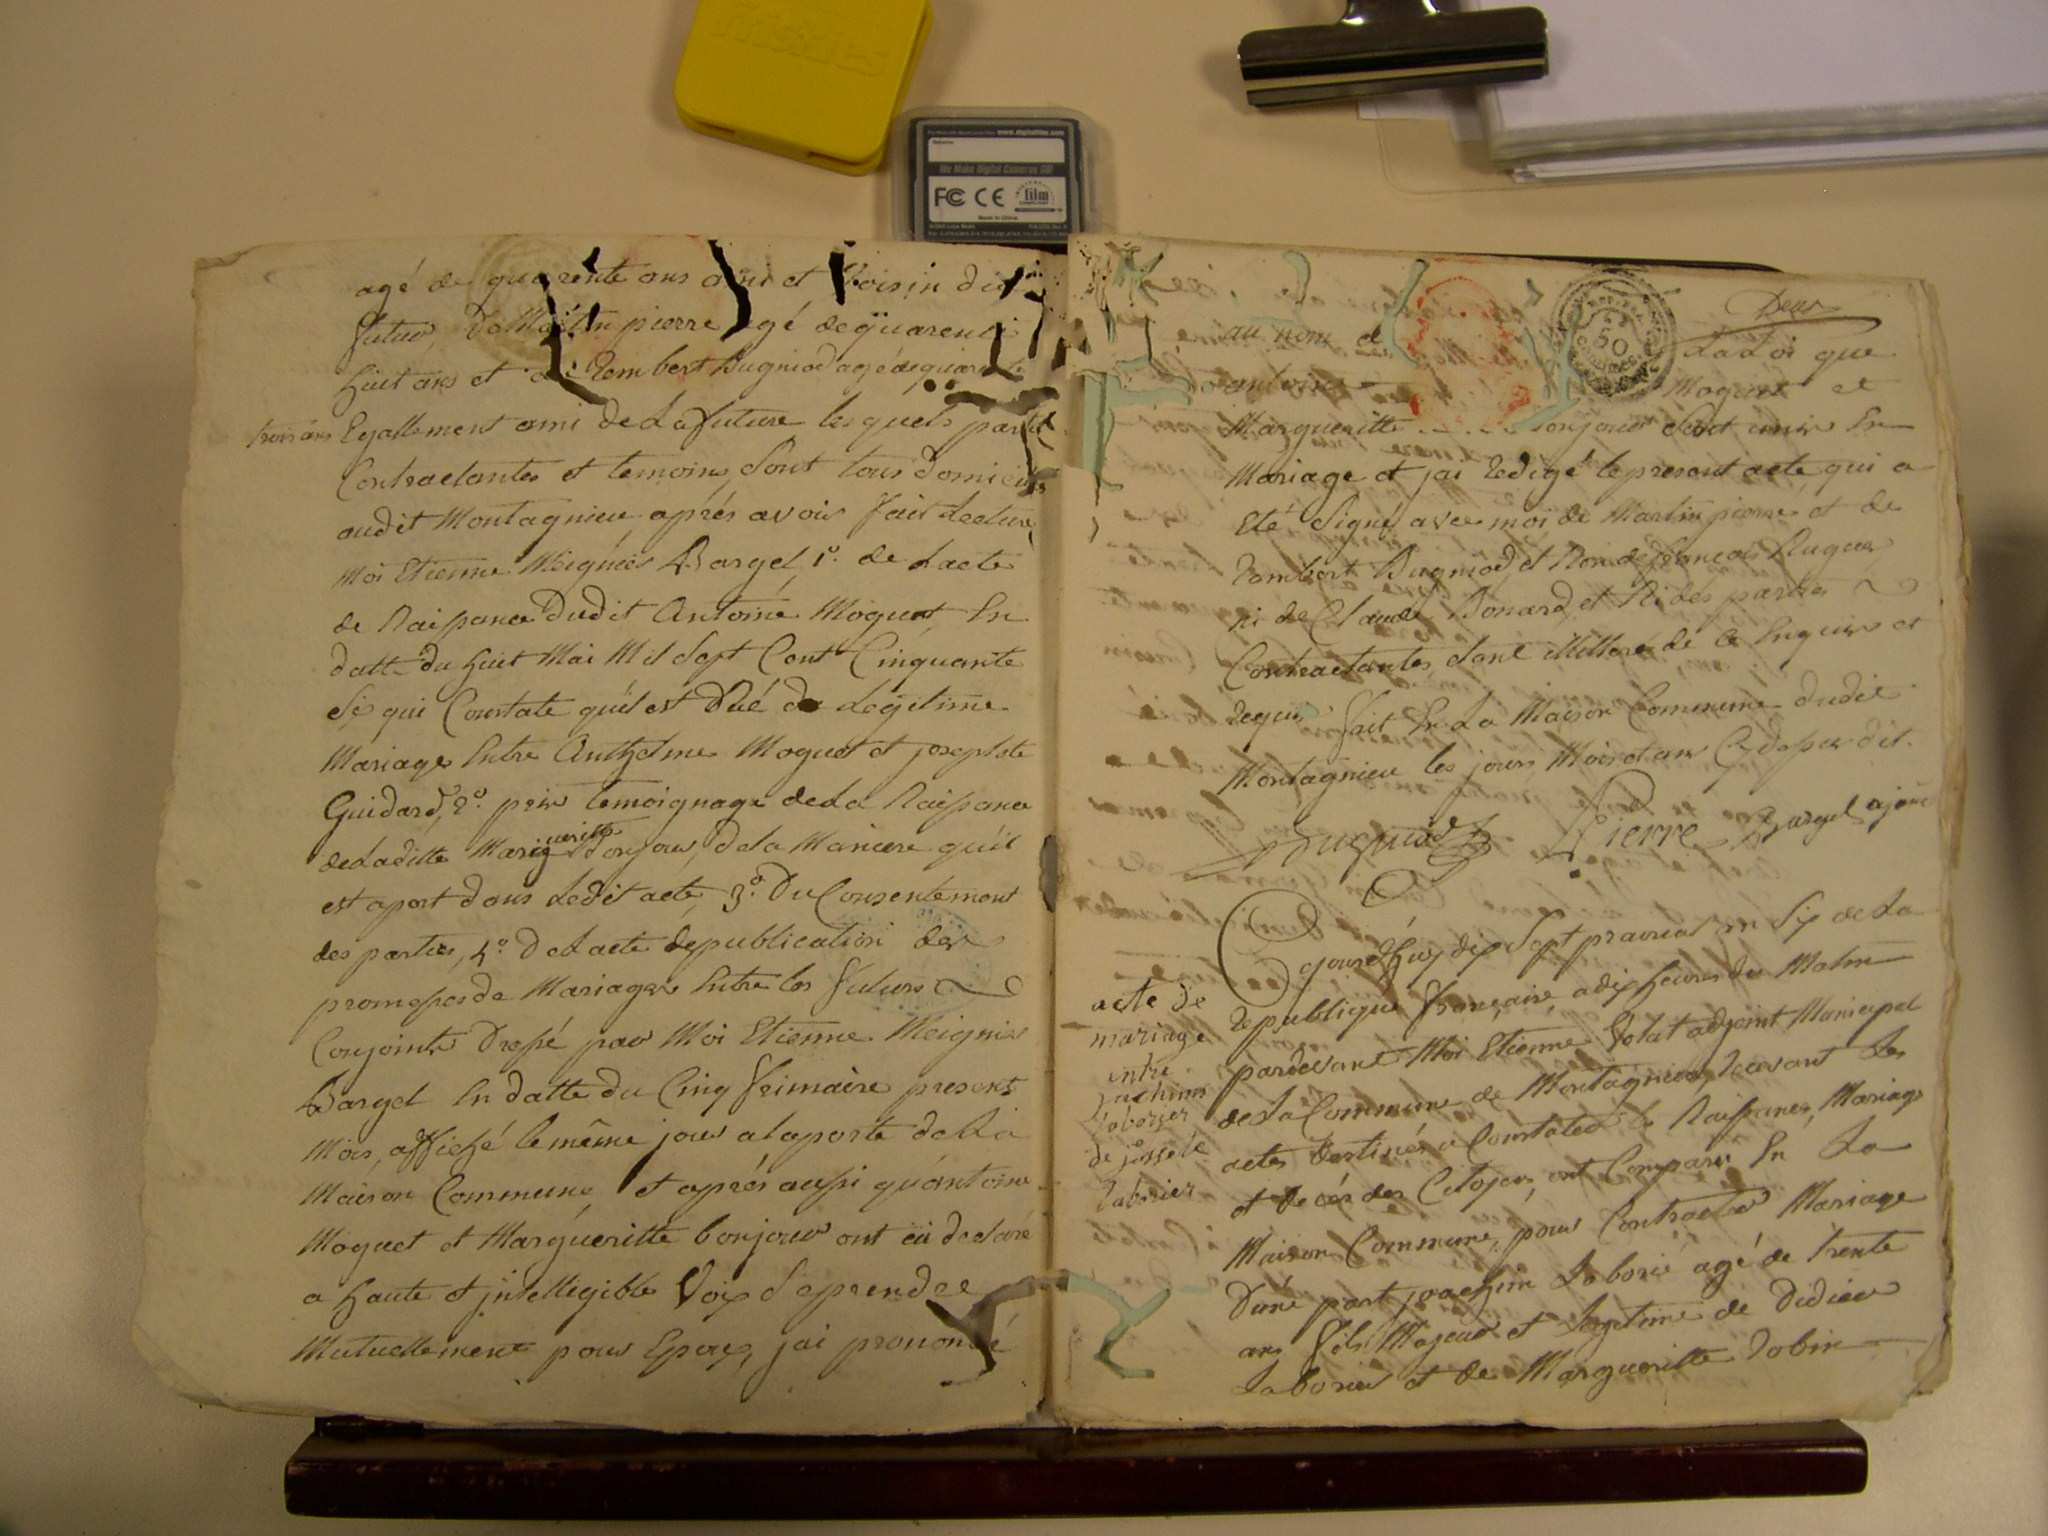 agé de quarente ans ami et Voisin du
futur, de Martin pierre agé de quarente
huit ans et de Rembert Bugniod agé de quarente
trois ans
Egallement ami de La future lesquels parties
Contractantes et temoins, Sont tous domiciliés
audit Montagnieu après avoir fait Lecture
Moi Etienne Meignier Bargel, 1°. de L'acte
de Naissance dudit Antoine Moguet, En
datte du huit Mai Mil Sept Cent Cinquante
Six qui Constate quil est Né de Légitime
Mariage Entre Anthelme Moguet et josephte
Guidard, 2°. prix temoignage de La Naissance
de Laditte Margueritte Bonjour, de la Maniere quil
est aport dans Ledit acte, 3°. Du Consentement
des parties, 4°. De L'acte de publication des
promesses de Mariages Entre les futurs
Conjoints Dressé par Moi Etienne Meignier
Bargel En datte du Cinq frimaire present
Mois, affiché le même jour a la porte de La
Maison Commune, et après aussi qu'antoine
Moguet et Margueritte bonjour ont eü declaré
a haute et jntelligible Voix Se prendre
Mutuellement pour Epoux, jai prononcé
Deux
50
au nom de La Loi que
antoine Moguet et
Margueritte Bonjour Sont unis En
Mariage et jai Redigé le present acte qui a
Eté Signé avec moi de Martin pierre et de
Rembert Bugniod, et Non de francois Ruguer
ni de Claude Bonard, et Ni des parties
Contractantes, dont illitterés de ce Enquis et
Requis fait En La Maison Commune dudit
Montagnieu les jours Mois et an Cy dessus dit.
Pierre Bargel ajoin
acte de
mariage
entre
jachim
laborier
de josete
Raborier
Cejourd'huy dix Sept prairial an Six de La
Republique française, a dix heures du Matin
pardevant Moi Etienne Tolat adjoint Municipal
de La Commune de Montagnieu, Recevant Les
actes destinés a Constater les Naissances, Mariage
et deces des Citoyens, ont Comparu En La
Maison Commune, pour Contracter Mariage
D'une part joachim Laborié agé de trente
ans fils Majeur et Legitime de Didier
Laborier et de Margueritte Robin
Friskies
www.digitalfilm.com
We Make Digital Cameras GO!
FC CE film
Made in China